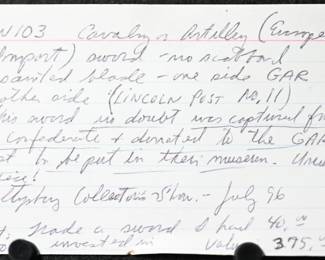 N103 Cavalry or Artillery (Europe
Import) sword - no scabbard
painted blade - one side GAR
other side (LINCOLN POST No. 11)
his sword no doubt was captured fr
Confederate & donated to the GAR
st to be put in their museum. Uni
piece!
ttysburg Collectors Show. - July 96
trade a sword I had 40.00
invested in Value 375.00